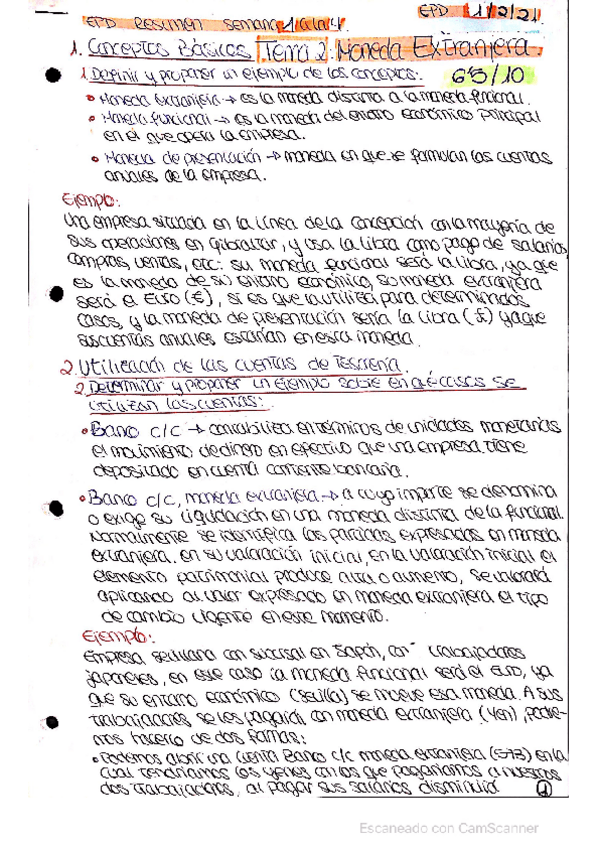 EPD Resumen semana 1 a la 4
EPD 1/2/21
1. Conceptos Básicos Tema 2: Moneda Extranjera.
1. Definir y proponer un ejemplo de los conceptos:
6'5/10
• Moneda extranjera → es la moneda distinta a la moneda funcional.
• Moneda funcional → es la moneda del entorno económico principal
en el que opera la empresa.
• Moneda de presentación → moneda en que se formulan las cuentas
anuales de la empresa.
Ejemplo:
Una empresa situada en la línea de la concepción con la mayoría de
sus operaciones en Gibraltar, y usa la libra como pago de salarios
compras, ventas, etc: su moneda funcional será la libra, ya que
es la moneda de su entorno económico, su moneda extranjera
será el Euro (€), si es que la utiliza para determinados
casos, y la moneda de presentación sería la libra (£) ya que
sus cuentas anuales estarían en esta moneda.
2. Utilización de las cuentas de Tesorería.
2. Determinar y proponer un ejemplo sobre en qué casos se
utilizan las cuentas:
• Banco c/c → contabiliza en términos de unidades monetarias
el movimiento de dinero en efectivo que una empresa tiene
depositado en cuenta corriente bancaria.
• Banco c/c, moneda extranjera → a cuyo importe se denomina
o exige su liquidación en una moneda distinta de la funcional.
Normalmente se identifica las partidas expresadas en moneda
extranjera. en su valoración inicial, en la valoración inicial el
elemento patrimonial produce alta o aumento, se valorará
aplicando al valor expresado en moneda extranjera el tipo
de cambio vigente en este momento.
Ejemplo:
Empresa sevillana con sucursal en Japón, con trabajadores
japoneses, en este caso la moneda funcional será el Euro, ya
que su entorno económico (Sevilla) se mueve esa moneda. A sus
trabajadores se les pagará con moneda extranjera (Yen), pode-
mos hacerlo de dos formas:
• Podemos abrir una cuenta Banco c/c moneda extranjera (573) en la
cual tendríamos los yenes con los que pagaríamos a nuestros
dos trabajadores, al pagar sus salarios disminuiría
1
Escaneado con CamScanner